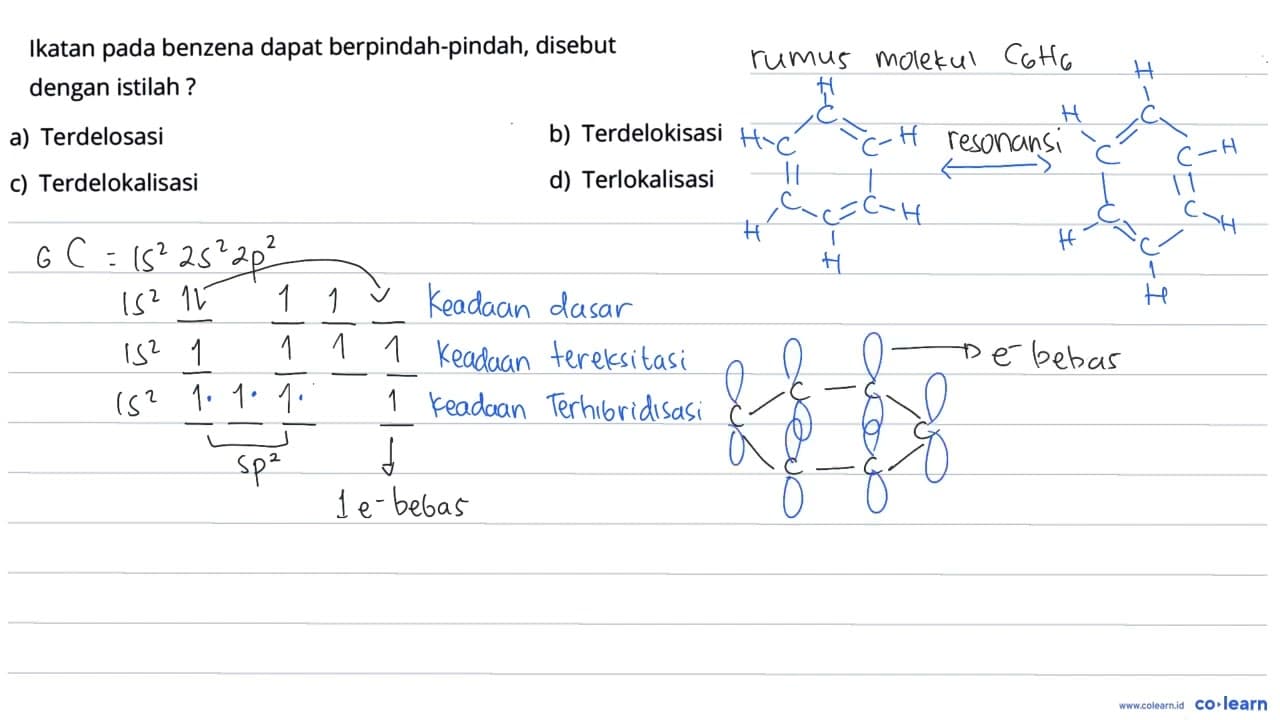 Ikatan pada benzena dapat berpindah-pindah, disebut
dengan istilah ?
a) Terdelosasi
b) Terdelokisasi
c) Terdelokalisasi
d) Terlokalisasi
rumus molekul C6H6
H
H C C H
C C H
H C
H
resonansi
H
H C
C C H
C C H
H C
H
6 C = 1s² 2s² 2p²
1s² 1l 1 1 Keadaan dasar
1s² 1 1 1 1 Keadaan tereksitasi
1s² 1. 1. 1. 1 Keadaan Terhibridisasi
sp²
1 e⁻ bebas
e⁻ bebas
C C
C C
C C
www.colearn.id co·learn